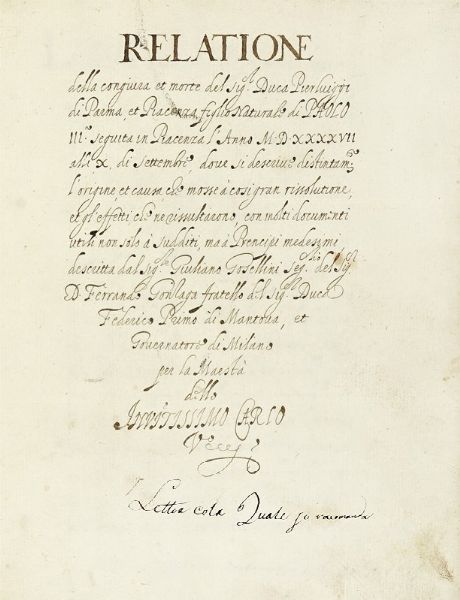 RELATIONE
della congiura et morte del sig.r Duca Pierluiggi
di Parma, et Piacenza figlio naturale di PAOLO
III.o seguita in Piacenza l'Anno M·DXXXXVII
alli X. di Settembre, dove si descrive distintam.te
l'origine et causa che mosse à così gran rissolutione,
et gl'effetti che ne rissultarono, con molti documenti
utili non solo à sudditi, ma à Prencipi medesimi
descritta dal sig.r Giuliano Gosellini Seg.rio del Sig.r
D. Ferrando Gonzaga fratello del sig.r Duca
Federico Primo di Mantova, et
Governatore di Milano
per la Maestà
dello
INVITISSIMO CARLO
Lettera cola Quale